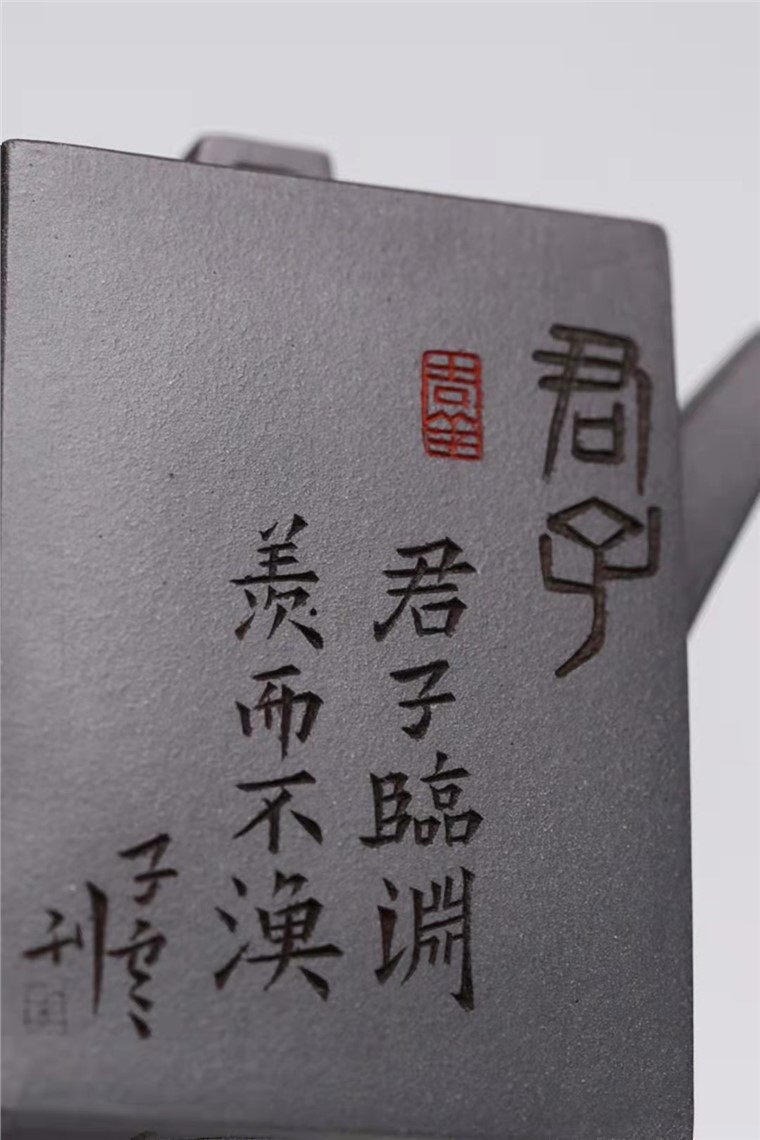 君子
君子臨淵
羨而不漁
子
刊